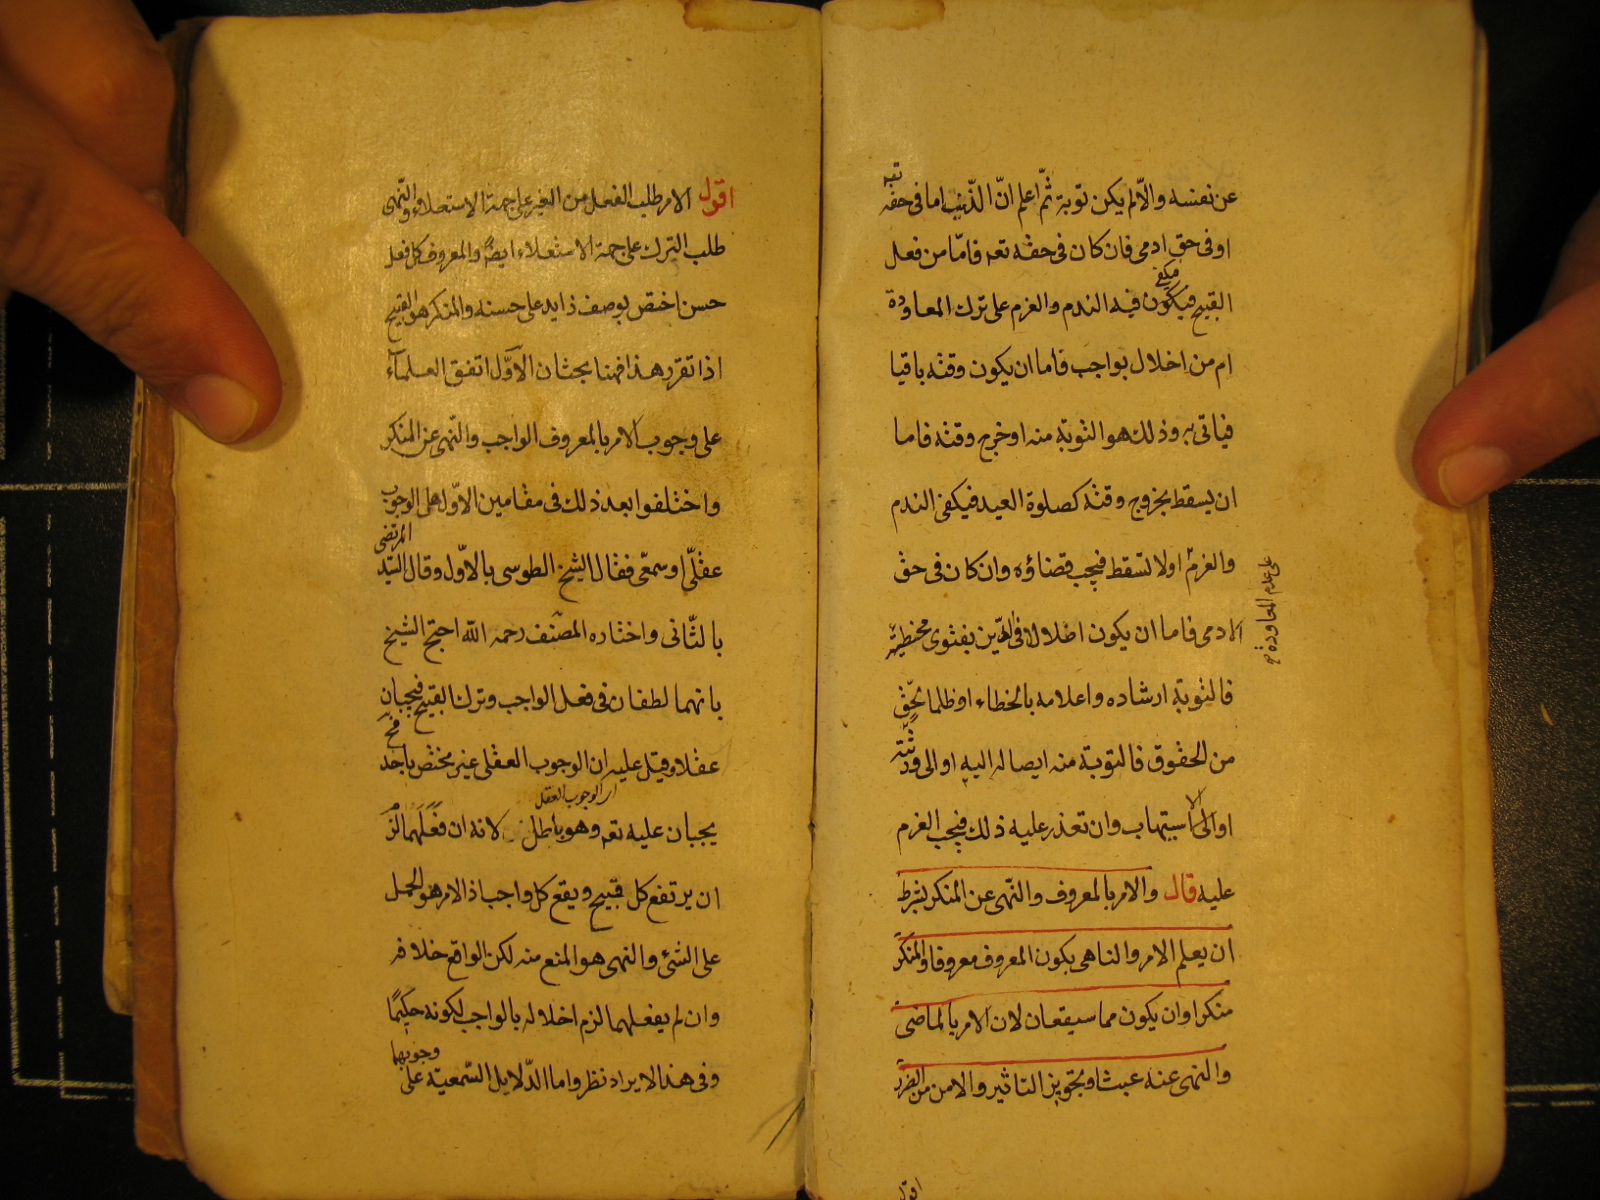 عن نفسه والاّ لم يكن توبة ثمّ اعلم انّ الذّنب اما فى حقه تعه
او فى حق ادمى فان كان فى حقه تعه فامّا من فعل
القبيح فيكفى فيه الندم والعزم على ترك المعاودة
ام من اخلال بواجب فاما ان يكون وقته باقيا
فياتى به وذلك هو التوبة منه او خرج وقته فاما
ان يسقط بخروج وقته كصلوة العيد فيكفى الندم
والعزم اولا تسقط فيجب قضاؤه وان كان فى حق
على عدم المعاودة
الادمى فاما ان يكون اضلالا فى الدّين بفتوى مخطية
فالتوبة ارشاده واعلامه بالخطاء او ظلما لحقّ
من الحقوق فالتوبة منه ايصاله اليه او الى ورثته
او الاستيهاب وان تعذر عليه ذلك فيجب العزم
عليه قال والامر بالمعروف والنّهى عن المنكر بشرط
ان يعلم الامر والناهى بكون المعروف معروفا والمنكر
منكرا وان يكون مما سيقعان لان الامر بالماضى
والنهى عنه عبث او بتجويز التاثير والامن من الضرر
اقول
اقول الامر طلب الفعل من الغير على جهة الاستعلاء والنّهى
طلب الترك على جهة الاستعلاء ايضً والمعروف كل فعل
حسن اختص بوصف زايد على حسنه والمنكر هو القبيح
اذا تقرر هذا فهنا بحثان الاوّل اتفق العلمآء
على وجوب الامر بالمعروف الواجب والنّهى عن المنكر
واختلفوا بعد ذلك فى مقامين الاوّل هل الوجوب
عقلّى او سمعّى فقال الشيخ الطوسى بالاوّل وقال السّيد المرتضى
بالثّانى واختاره المصنّف رحمه الله احتج الشيخ
بانهما لطفان فى فعل الواجب وترك القبيح فيجبان
عقلا وقيل عليه ان الوجوب العقلى غير مختص باحد فح
اى الوجوب العقل
يجبان عليه تعه وهو باطل لانه ان فعلهما لزم
ان يرتفع كل قبيح ويقع كل واجب اذ الامر هو الحمل
على الشئ والنهى هو المنع منه لكن الواقع خلافه
وان لم يفعلهما لزم اخلاله بالواجب لكونه حكيمًا
وفى هذا الايراد نظر واما الدّلايل السّمعيّة على وجوبهما